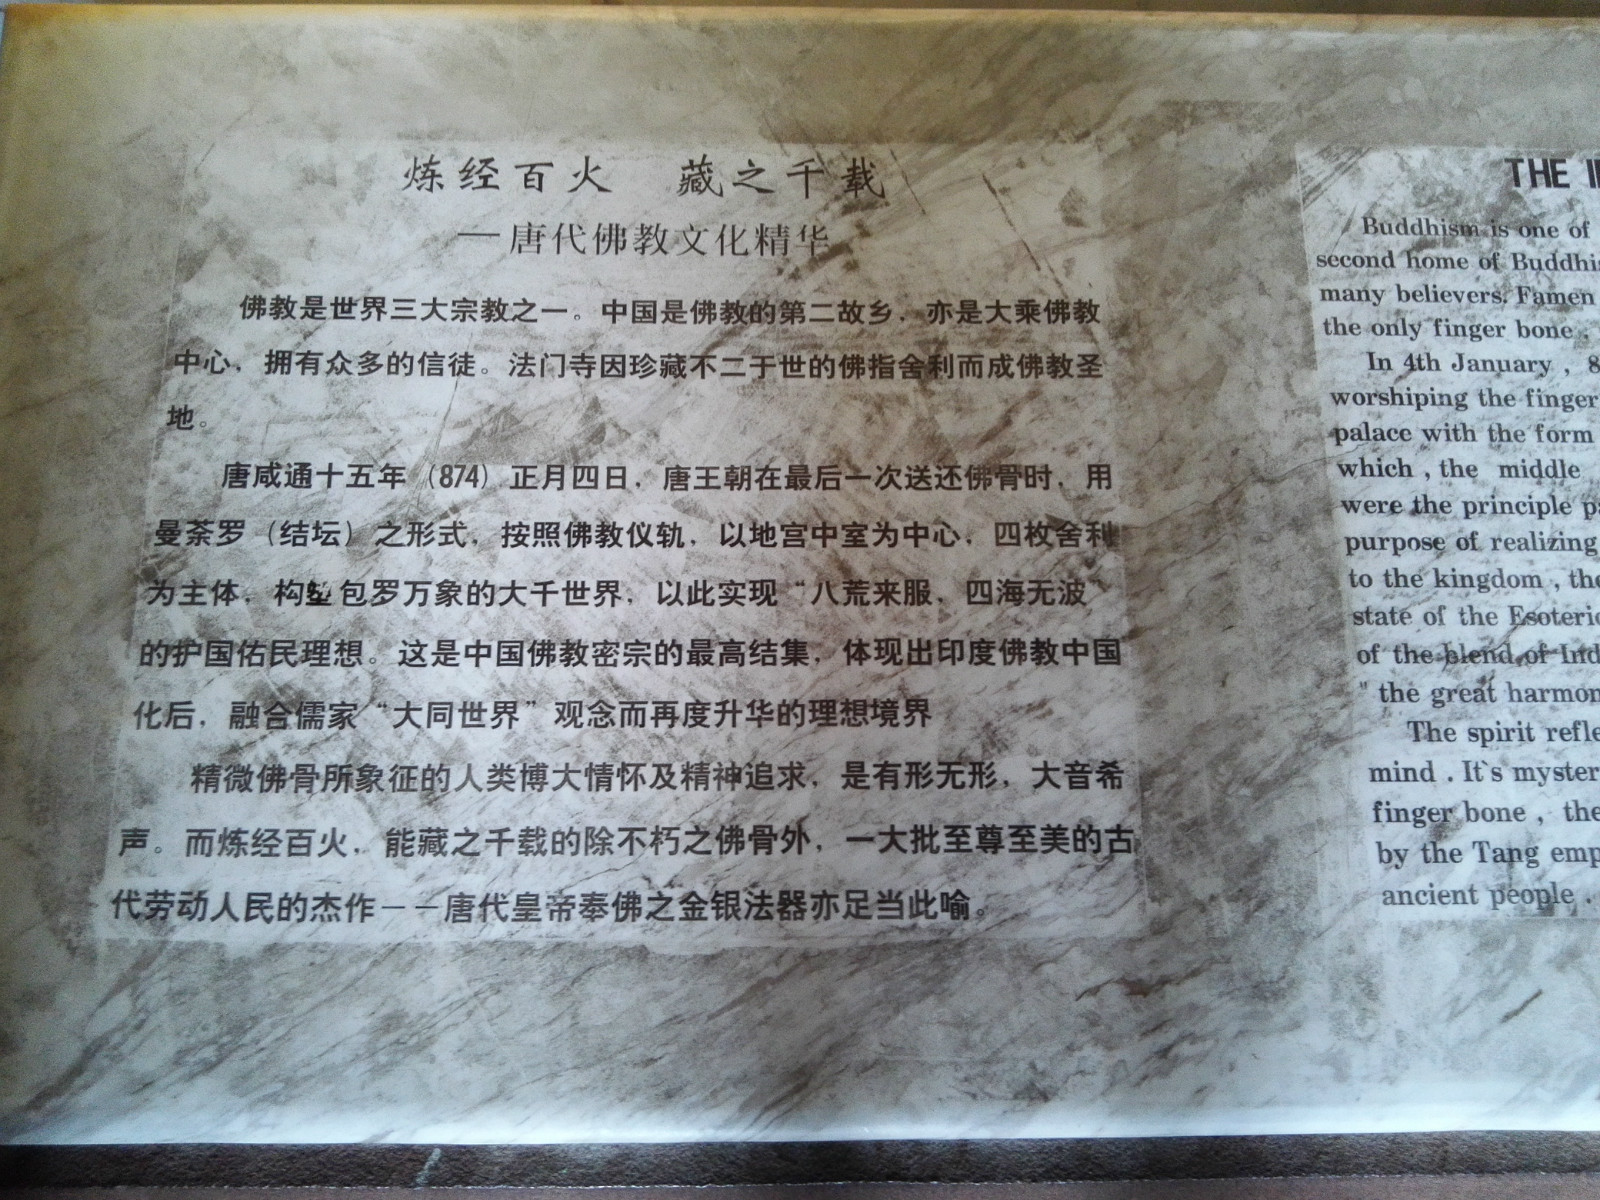 炼经百火 藏之千载
—唐代佛教文化精华
佛教是世界三大宗教之一。中国是佛教的第二故乡，亦是大乘佛教
中心，拥有众多的信徒。法门寺因珍藏不二于世的佛指舍利而成佛教圣
地。
唐咸通十五年（874）正月四日，唐王朝在最后一次送还佛骨时，用
曼荼罗（结坛）之形式，按照佛教仪轨，以地宫中室为中心，四枚舍利
为主体，构 包罗万象的大千世界，以此实现“八荒来服，四海无波”
的护国佑民理想。这是中国佛教密宗的最高结集，体现出印度佛教中国
化后，融合儒家“大同世界”观念而再度升华的理想境界
精微佛骨所象征的人类博大情怀及精神追求，是有形无形，大音希
声。而炼经百火，能藏之千载的除不朽之佛骨外，一大批至尊至美的古
代劳动人民的杰作——唐代皇帝奉佛之金银法器亦足当此喻。
THE
Buddhism is one of
second home of
many believers. Famen
the only finger bone .
In 4th January , 8
worshiping the finger
palace with the form
which , the middle
were the principle
purpose of realizing
to the kingdom , the
state of the
of the blend of
" the great
The spirit
mind . It`s
finger bone , the
by the Tang
ancient people .